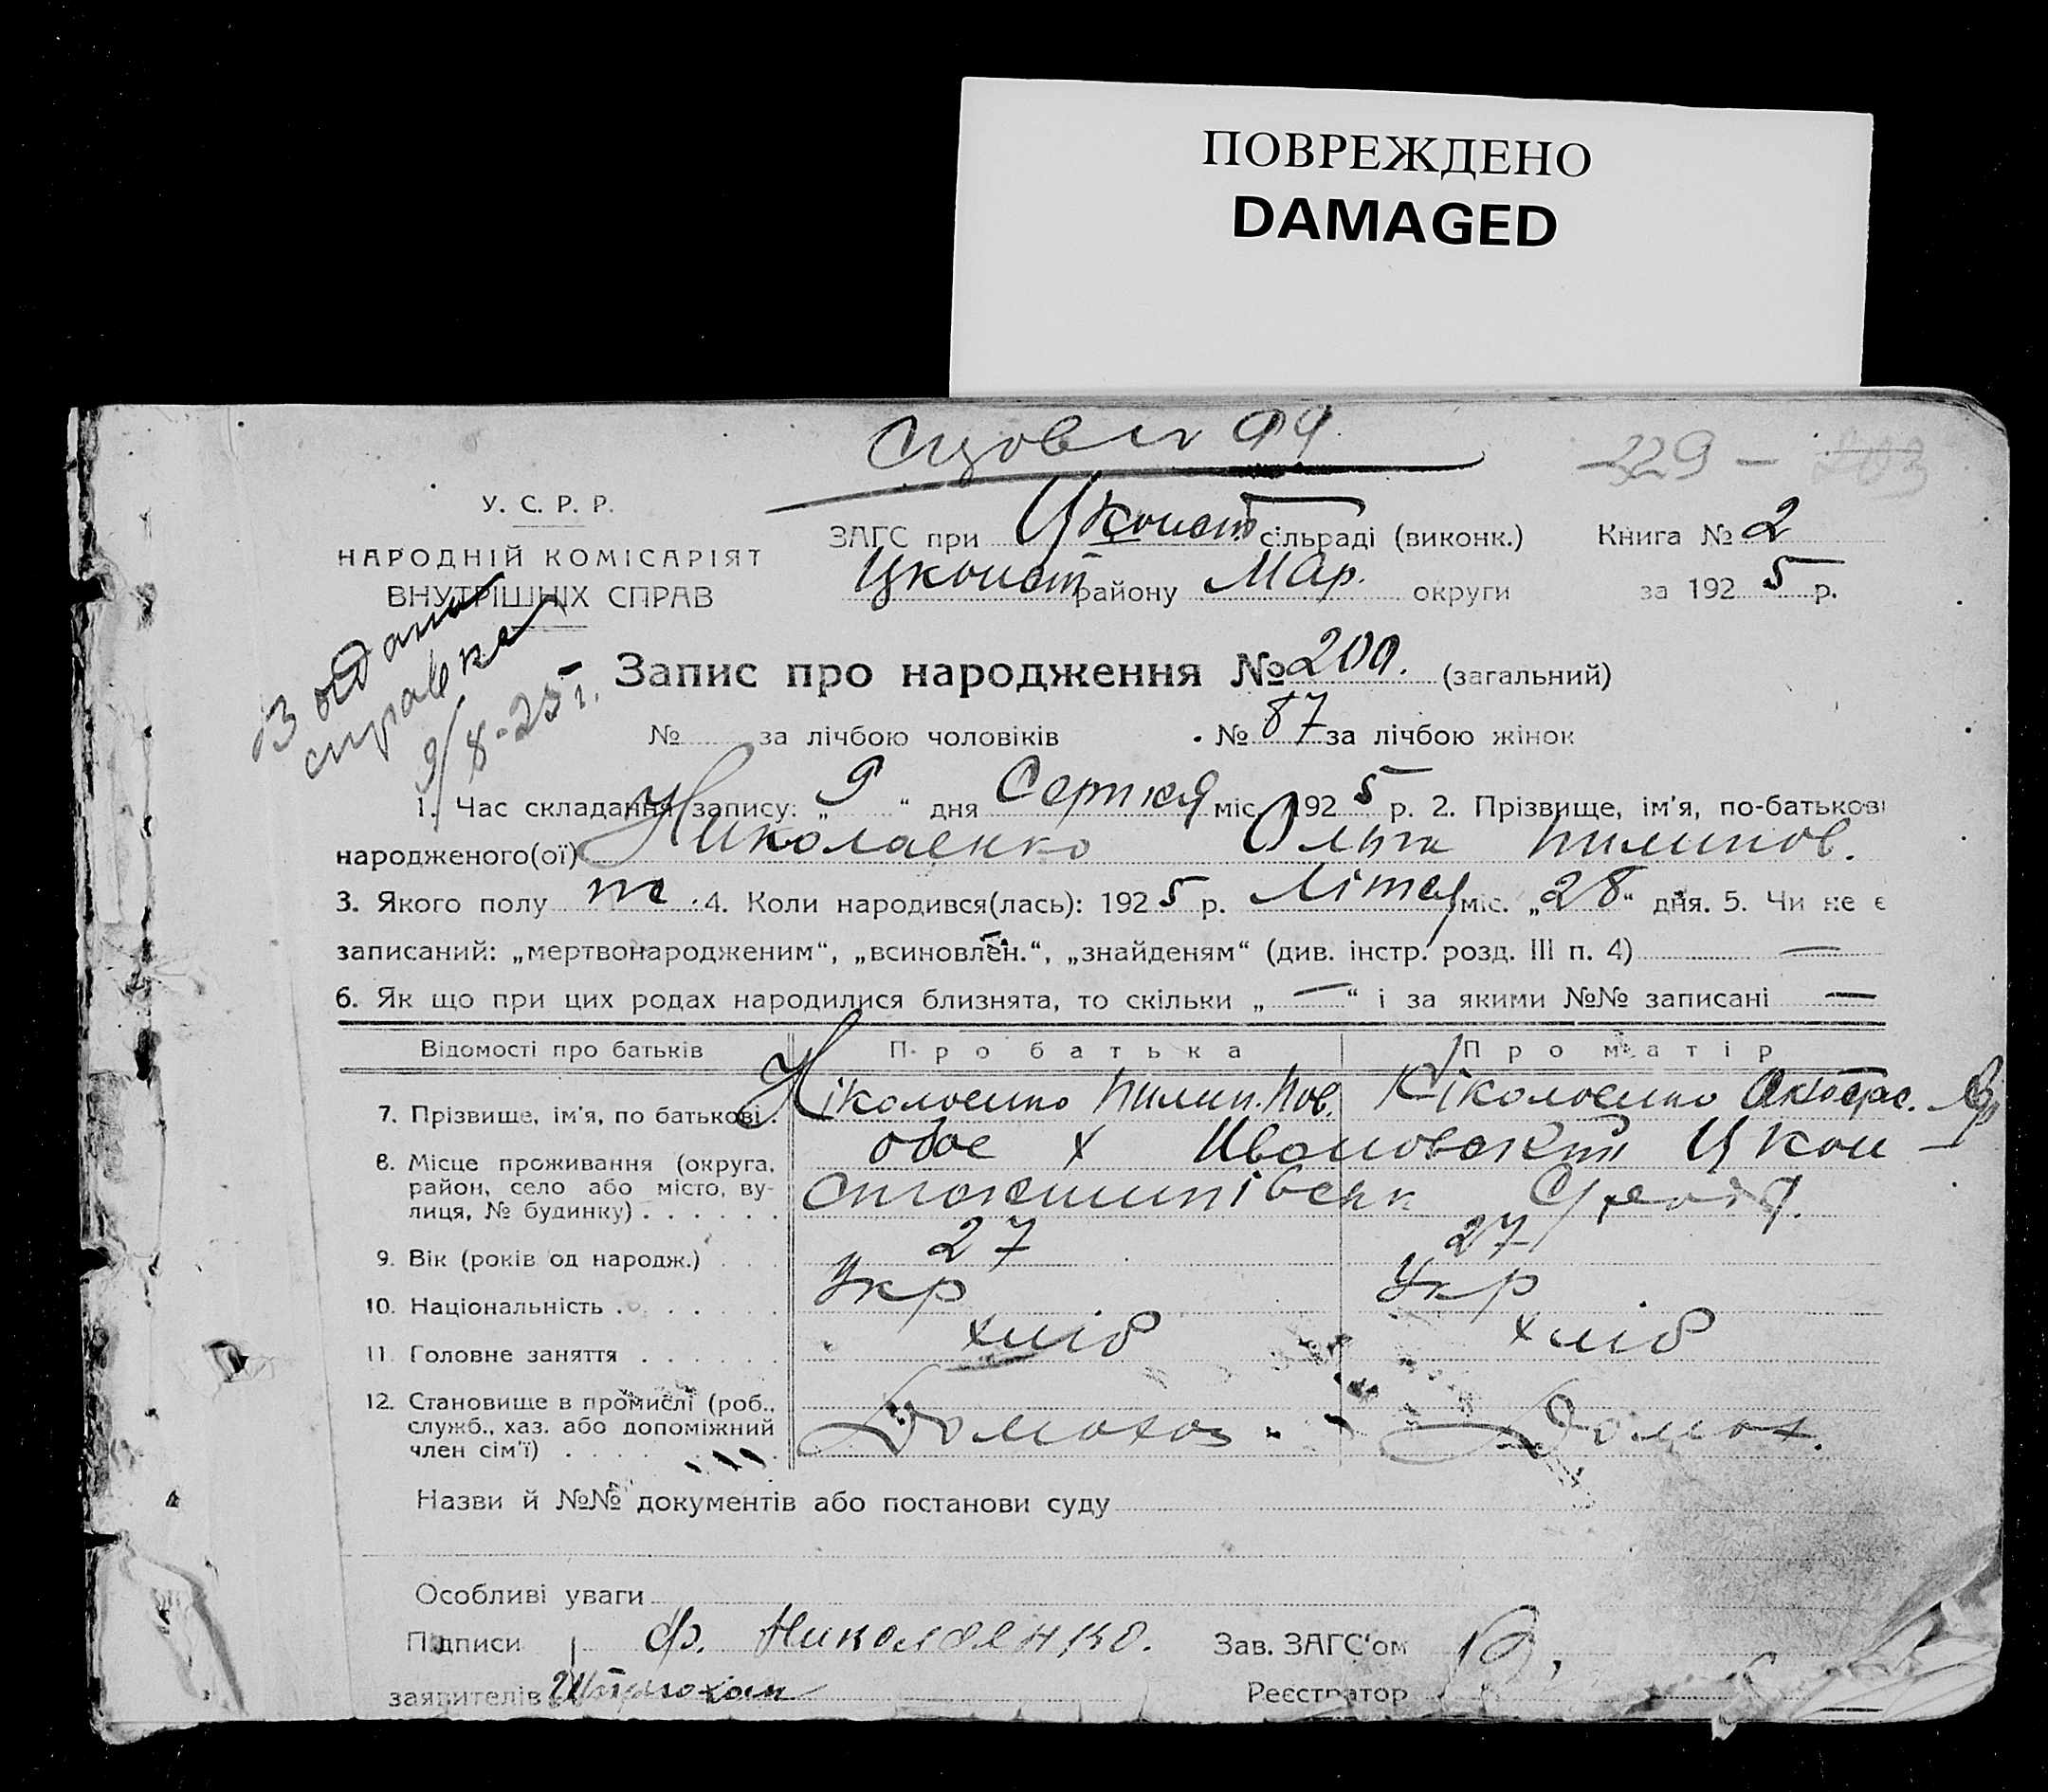 ПОВРЕЖДЕНО
DAMAGED
229 -
У. С. Р. Р.
НАРОДНІЙ КОМІСАРІЯТ
ВНУТРІШНІХ СПРАВ
ЗАГС при Цконст сільраді (виконк.) Книга № 2
Цконст району Мар. округи за 1925 р.
справка
9/8-25 г.
Запис про народження № 200. (загальний)
№ за лічбою чоловіків № 87 за лічбою жінок
1. Час складання запису: „9“ дня Серпня міс. 1925 р. 2. Прізвище, ім'я, по-батькові
народженого(ої) Николаенко Ольга Пилипов.
3. Якого полу ж. 4. Коли народився(лась): 1925 р. Літня міс. „28“ дня. 5. Чи не є
записаний: „мертвонародженим“, „всиновлен.“, „знайденям“ (див. інстр. розд. III п. 4) —
6. Як що при цих родах народилися близнята, то скільки „—“ і за якими №№ записані —
Відомості про батьків Про батька Про матір
7. Прізвище, ім'я, по батькові. Ніколаенко Пилип. Ніколаенко
8. Місце проживання (округа, район, село або місто, вулиця, № будинку) обое х Ивановский Цкон
9. Вік (років од народж.) 27 27
10. Національність Укр Укр
11. Головне заняття хліб хліб
12. Становище в промислі (роб., служб., хаз. або допоміжний член сім'ї) Домохоз. Домох.
Назви й №№ документів або постанови суду
Особливі уваги
Підписи Ф. Николаенко. Зав. ЗАГС'ом
заявителів Реєстратор